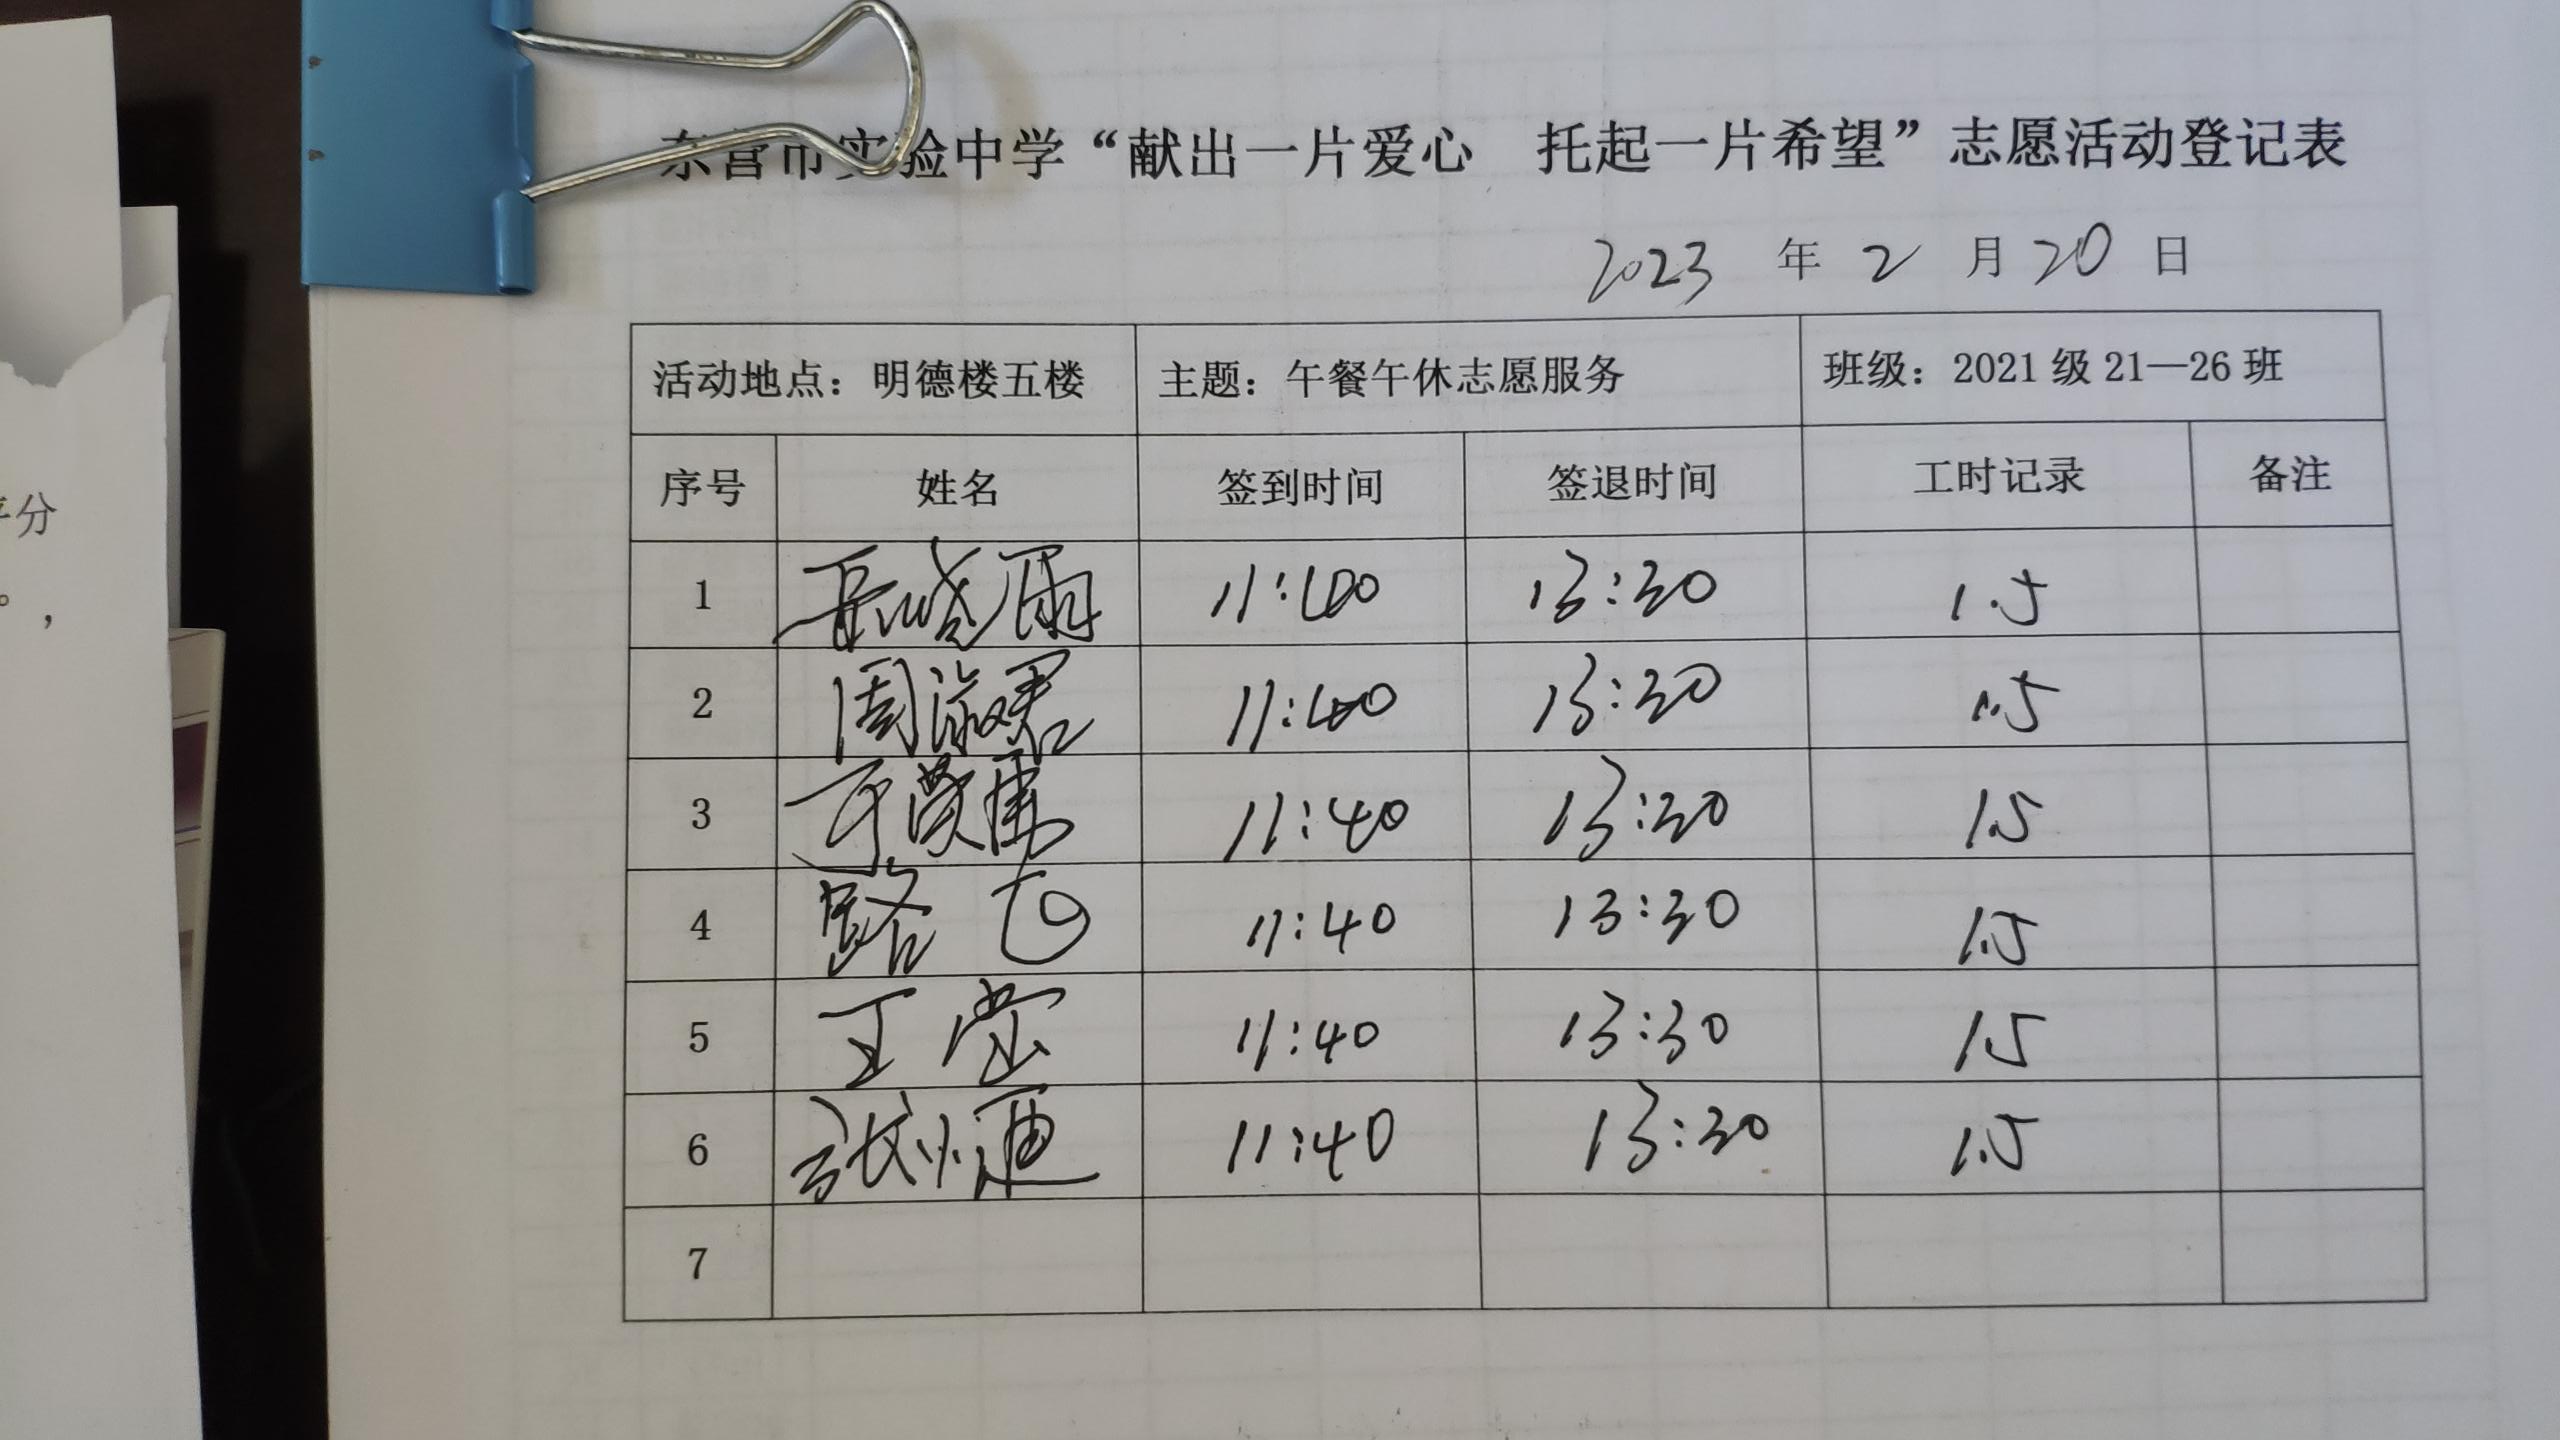 东营市实验中学“献出一片爱心 托起一片希望”志愿活动登记表
2023 年 2 月 20 日
活动地点：明德楼五楼 主题：午餐午休志愿服务 班级：2021级21—26班
序号 姓名 签到时间 签退时间 工时记录 备注
1 岳晓雨 11:40 13:30 1.5
2 周淑君 11:40 13:30 1.5
3 11:40 13:30 1.5
4 路飞 11:40 13:30 1.5
5 王莹 11:40 13:30 1.5
6 11:40 13:30 1.5
7
分
。，